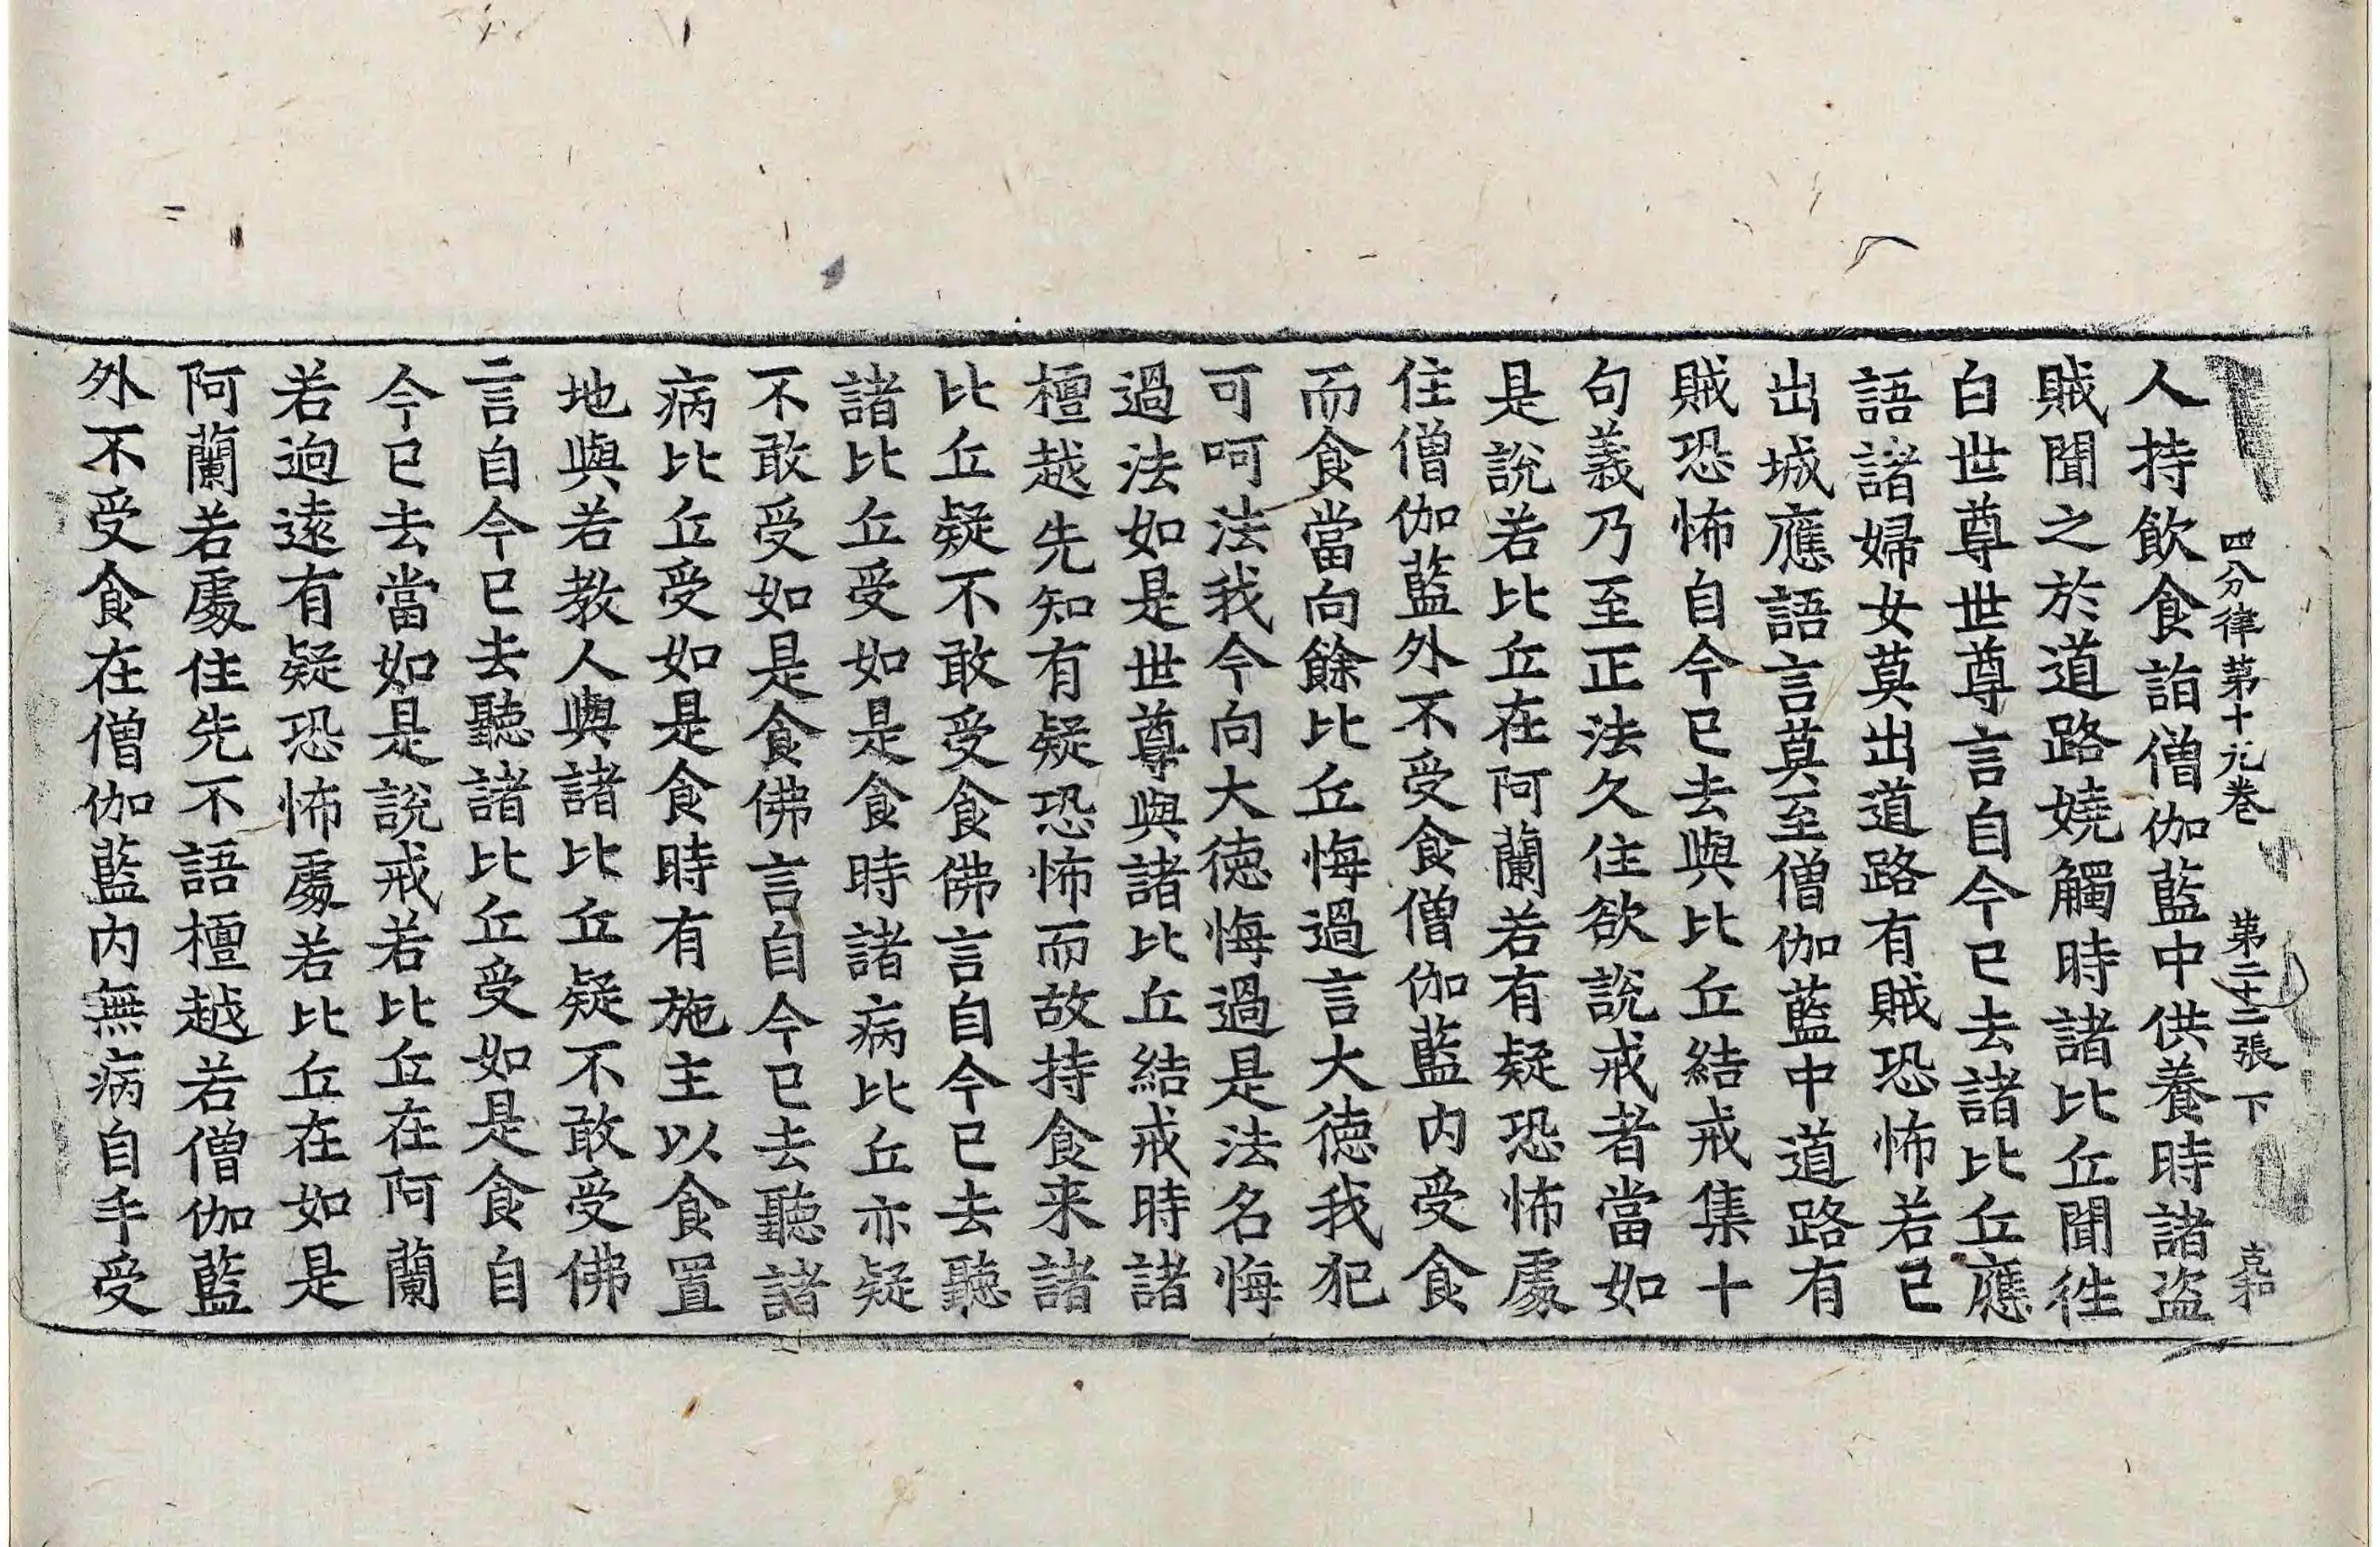 四分律第十九卷 第二十二張 下 克和
人持飲食詣僧伽藍中供養時諸盜
賊聞之於道路嬈觸時諸比丘聞徃
白世尊世尊言自今已去諸比丘應
語諸婦女莫出道路有賊恐怖若已
出城應語言莫至僧伽藍中道路有
賊恐怖自今已去與比丘結戒集十
句義乃至正法久住欲說戒者當如
是說若比丘在阿蘭若有疑恐怖處
住僧伽藍外不受食僧伽藍内受食
而食當向餘比丘悔過言大德我犯
可呵法我今向大德悔過是法名悔
過法如是世尊與諸比丘結戒時諸
檀越先知有疑恐怖而故持食来諸
比丘疑不敢受食佛言自今已去聽
諸比丘受如是食時諸病比丘亦疑
不敢受如是食佛言自今已去聽諸
病比丘受如是食時有施主以食置
地與若教人與諸比丘疑不敢受佛
言自今已去聽諸比丘受如是食自
今已去當如是說戒若比丘在阿蘭
若逈遠有疑恐怖處若比丘在如是
阿蘭若處住先不語檀越若僧伽藍
外不受食在僧伽藍内無病自手受